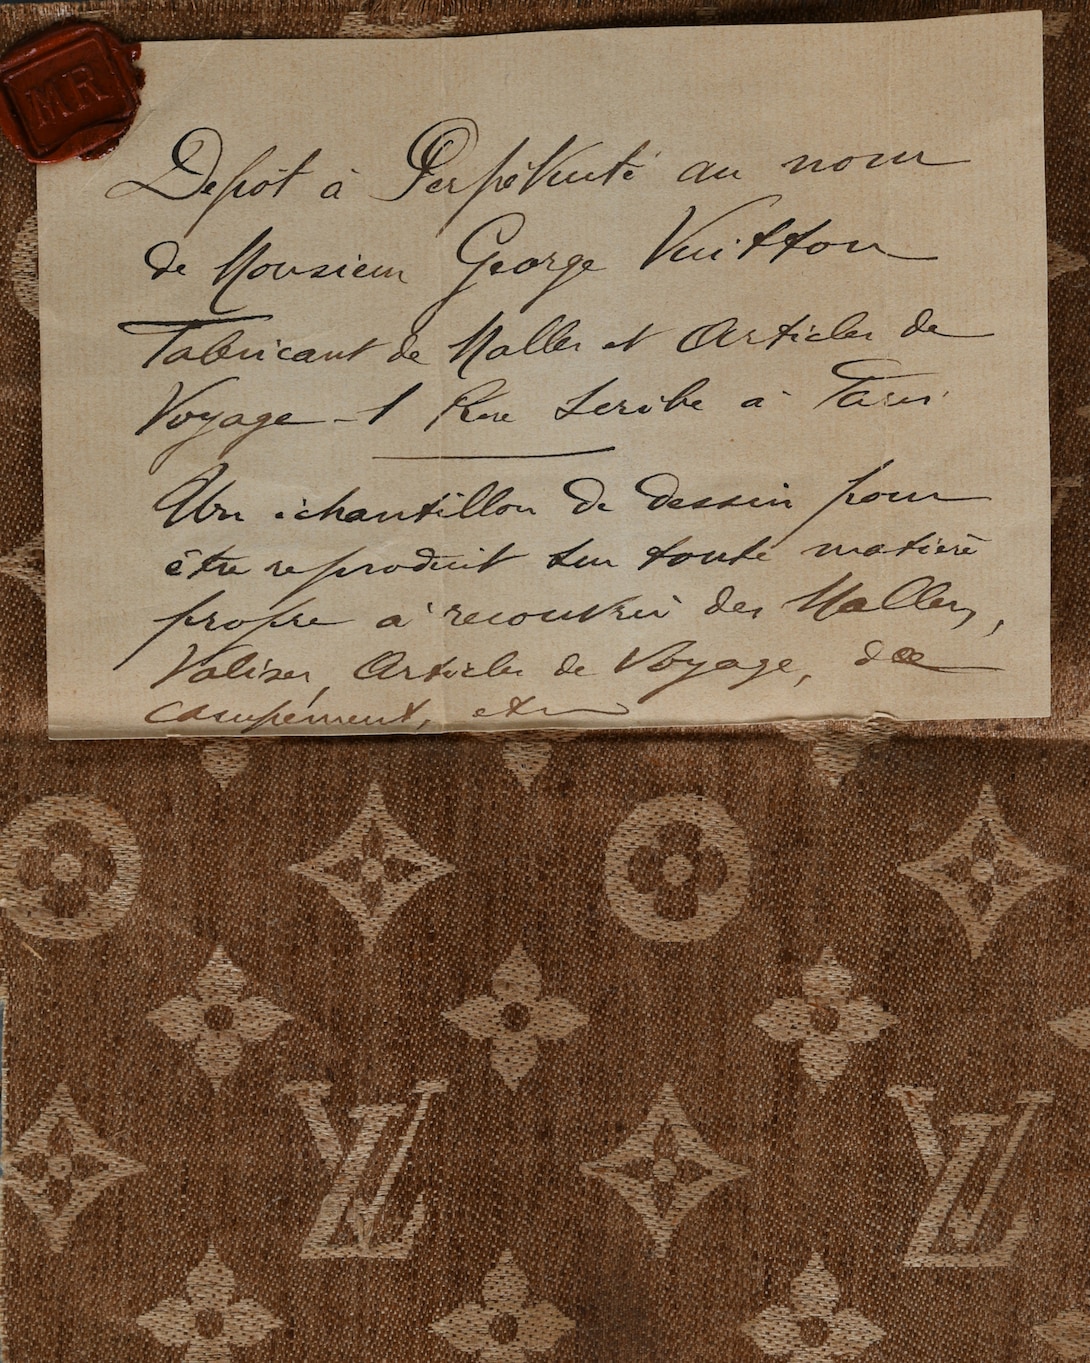 MR
Depôt à Perpétuité au nom
de Monsieur George Vuitton
Fabricant de Malles et Articles de
Voyage - 1 Rue Scribe à Paris
Un échantillon de dessin pour
être reproduit sur toute matière
propre à recouvrir des Malles,
Valises, Articles de Voyage, de
campement, etc
LV LV